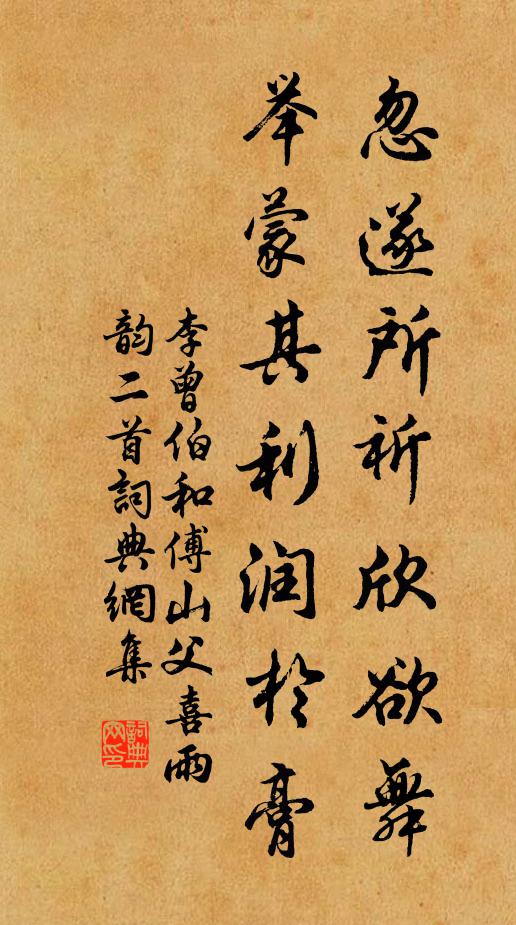 忽遂所祈欣欲舞
举蒙其利润於膏
李曾伯和傅山父喜雨
韵二首詞典網集
詞典網印